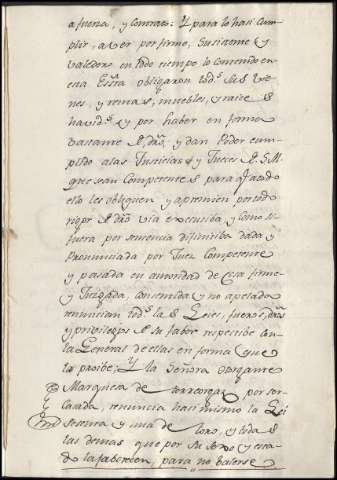 afuera, y contrato: Y para lo hasi cum
plir, aver por firme, Susistente y
valedero en todo tiempo lo contenido en
esta Essra obligaron todos sus vie
nes, y rentas, muebles, y raices
havidos y por haber en forma
vastante de dro, y dan Poder cum
plido alas Justicias y Jueces de S.M.
que sean Competentes para q.e a todo
ello les obliguen y apremien por todo
rigor de dro via executiva y como si
fuera por sentencia difinitiva dada y
Pronunciada por Juez Competente
y pasada en autoridad de Cosa firme
y Juzgada, consentida y no apelada
renuncian todas las Leies, fueros, dros
y privilegios de su fabor respectibe con
la General de ellas en forma que
lo proibe; Y la Señora otorgante
Marquesa de torreorgaz por ser
Casada, renuncia hasi mismo la Lei
sesenta y una de toro, y todas
las demas que por su sexo y esta
do la faborecen, para no balerse